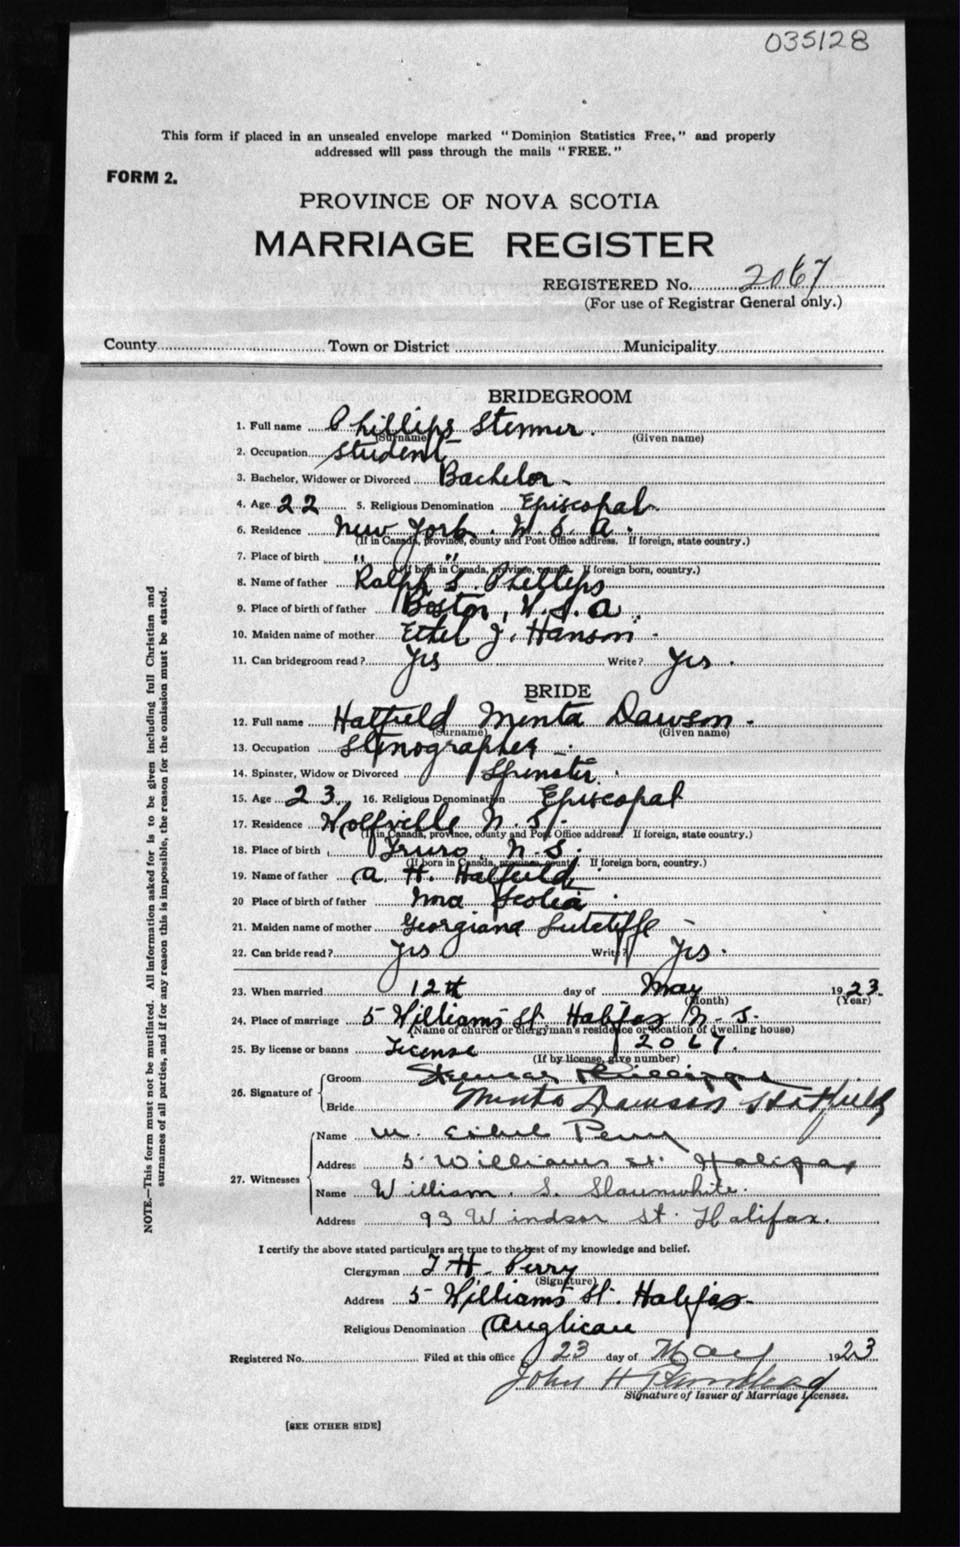 035128
This form if placed in an unsealed envelope marked "Dominion Statistics Free," and properly
addressed will pass through the mails "FREE."
FORM 2.
PROVINCE OF NOVA SCOTIA
MARRIAGE REGISTER
REGISTERED No. 2067
(For use of Registrar General only.)
County Town or District Municipality
BRIDEGROOM
1. Full name Phillips
(Surname) (Given name)
2. Occupation Student
3. Bachelor, Widower or Divorced Bachelor
4. Age 22 5. Religious Denomination Episcopal
6. Residence New York. U. S. A.
(If in Canada, province, county and Post Office address. If foreign, state country.)
7. Place of birth " "
(If born in Canada, province, county. If foreign born, country.)
8. Name of father Ralph S. Phillips
9. Place of birth of father Boston, U. S. A.
10. Maiden name of mother Ethel J. Hanson
11. Can bridegroom read? Yes Write? Yes.
BRIDE
12. Full name Hatfield Minta Dawson.
(Surname) (Given name)
13. Occupation Stenographer
14. Spinster, Widow or Divorced Spinster.
15. Age 23. 16. Religious Denomination Episcopal
17. Residence Wolfville N. S.
(If in Canada, province, county and Post Office address. If foreign, state country.)
18. Place of birth Truro, N. S.
(If born in Canada, province, county. If foreign born, country.)
19. Name of father A. H. Hatfield
20 Place of birth of father Nova Scotia
21. Maiden name of mother Georgiana Sutcliffe
22. Can bride read? Yes Write? Yes.
23. When married 12th day of May 1923.
(Month) (Year)
24. Place of marriage 5 Williams St. Halifax N. S.
(Name of church or clergyman's residence or location of dwelling house)
25. By license or banns License 2067.
(If by license, give number)
26. Signature of Groom Phillips
Bride Minta Dawson Hatfield
27. Witnesses Name M. Ethel Perry
Address 5 Williams St. Halifax
Name William. S. Slaunwhite.
Address 93 Windsor St. Halifax.
I certify the above stated particulars are true to the best of my knowledge and belief.
Clergyman T. H. Perry
(Signature)
Address 5 Williams St. Halifax.
Religious Denomination Anglican
Registered No. Filed at this office 23 day of May 1923
John H
Signature of Issuer of Marriage Licenses.
[SEE OTHER SIDE]
NOTE.—This form must not be mutilated. All information asked for is to be given including full Christian and
surnames of all parties, and if for any reason this is impossible, the reason for the omission must be stated.